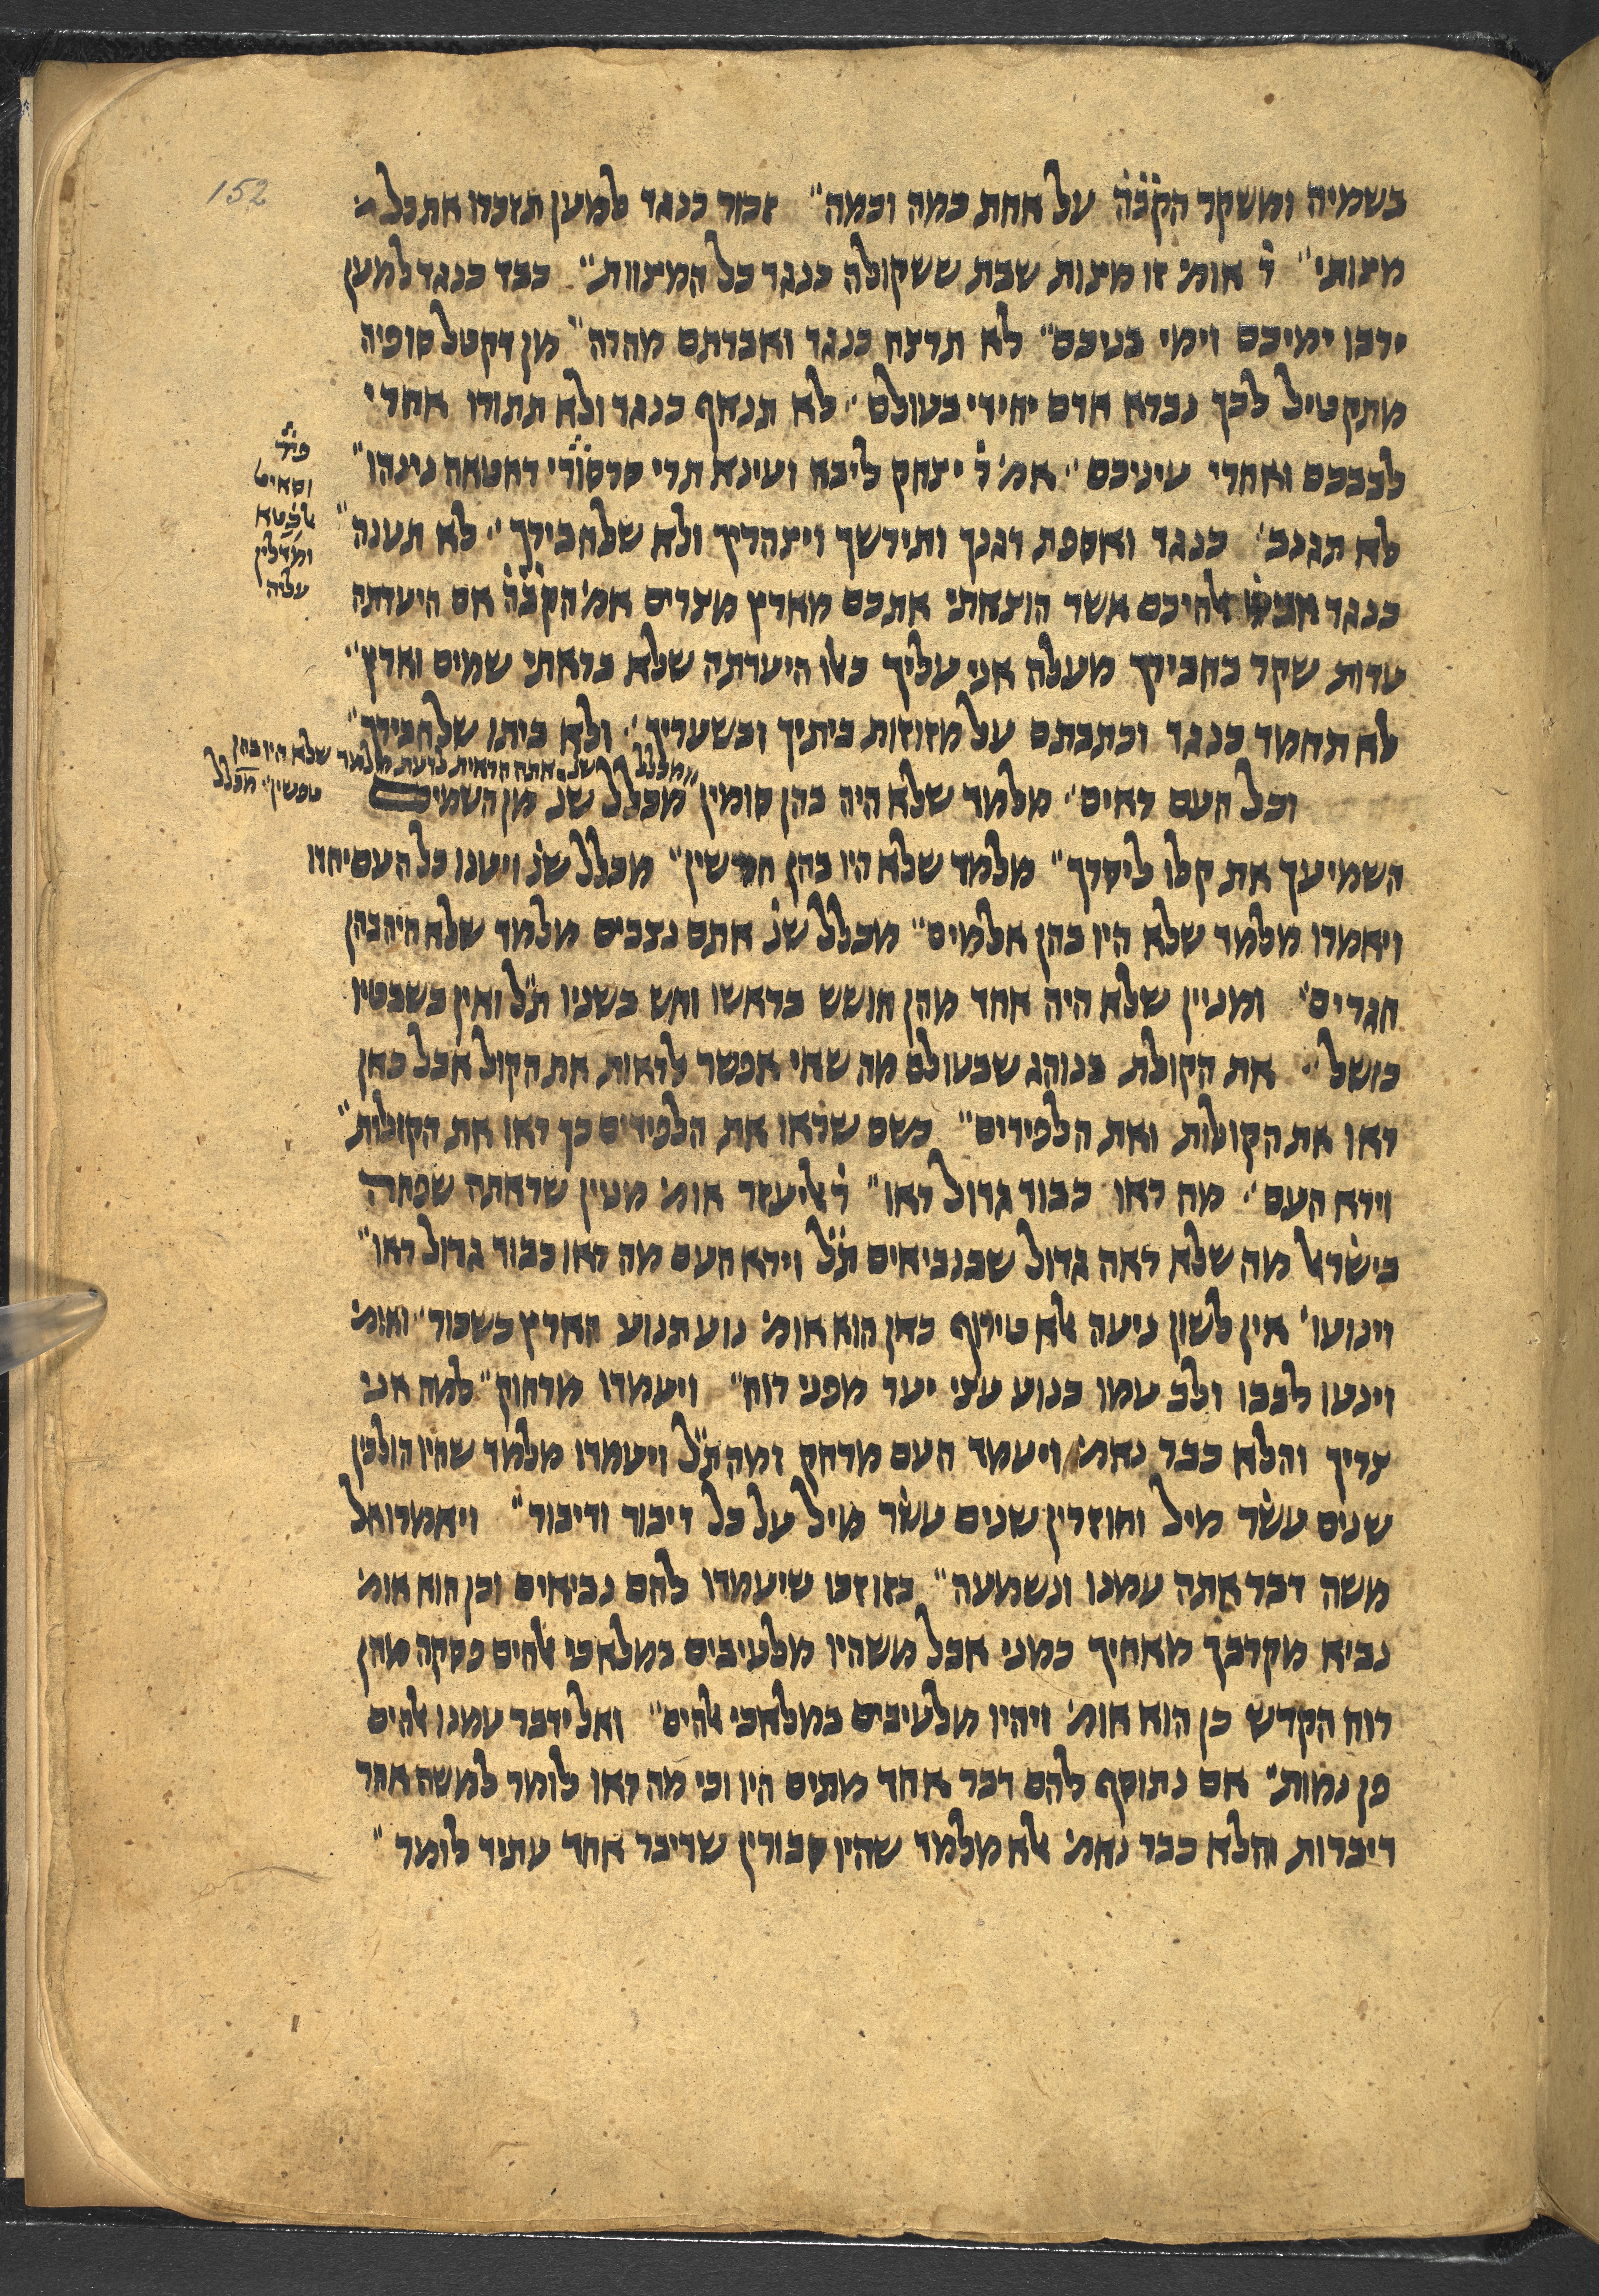 152
בשמיה ומשקר הקבה על אחת כמה וכמה" זכור כנגד למען תזכרו את כל
מצותי" ר' אומ' זו מצות שבת ששקולה כנגד כל המצוות" כבד כנגד למען
ירבו ימיכם וימי בניכם" לא תרצח כנגד ואבדתם מהרה" מן דקטל סופיה
מתקטיל לכך נברא אדם יחידי בעולם" לא תנאף כנגד ולא תתורו אחרי
לבבכם ואחרי עיניכם" אמ' ר' יצחק ליבא ועינא תרי סרסורי דחטאה נינהו"
לא תגנב' כנגד ואספת דגנך ותירשך ויצהרך ולא שלחבירך" לא תענה"
כנגד אני אלהיכם אשר הוצאתי אתכם מארץ מצרים אמ' הקבה אם היעדתה
עדות שקר בחבירך מעלה אני עליך כאלו היעדתה שלא בראתי שמים וארץ"
לא תחמד כנגד וכתבתם על מזוזות ביתיך ובשעריך" ולא ביתו שלחבירך"
מכלל שנ' אתה הראית לדעת מלמד שלא היו בהן
טפשין" מכלל
וכל העם ראים" מלמד שלא היה בהן סומין" מכלל שנ' מן השמים
השמיעך את קלו ליסרך" מלמד שלא היו בהן חרשין" מכלל שנ' ויענו כל העם יחדו
ויאמרו מלמד שלא היו בהן אלמים" מכלל שנ' אתם נצבים מלמד שלא היה בהן
חגרים' ומניין שלא היה אחד מהן חושש בראשו וחש בשניו ת"ל ואין בשבטיו
כושל" את הקולת בנוהג שבעולם מה שאי אפשר לראות את הקול אבל כאן
ראו את הקולות ואת הלפידים" כשם שראו את הלפידים כך ראו את הקולות"
וירא העם" מה ראו כבוד גדול ראו" ר' אליעזר אומ' מנין שראתה שפחה
בישראל מה שלא ראה גדול שבנביאים ת"ל וירא העם מה ראו כבוד גדול ראו"
וינועו' אין לשון ניעה אלא טירוף כאן הוא אומ' נוע תנוע הארץ כשכור" ואומ'
וינע לבבו ולב עמו כנוע עצי יער מפני רוח" ויעמדו מרחוק" למה אני
צריך והלא כבר נאמ' ויעמד העם מרחק ומה ת"ל ויעמדו מלמד שהיו הולכין
שנים עשר מיל וחוזרין שנים עשר מיל על כל דיבור ודיבור" ויאמרו אל
משה דבר אתה עמנו ונשמעה" בזו זכו שיעמדו להם נביאים וכן הוא אומ'
נביא מקרבך מאחיך כמני אבל משהיו מלעיבים במלאכי אלהים פסקה מהן
רוח הקדש כן הוא אומ' ויהיו מלעיבים במלאכי אלהים" ואל ידבר עמנו אלהים
פן נמות" אם נתוסף להם דבר אחד מתים היו וכי מה ראו לומר למשה אחר
דיברות והלא כבר נאמ' אלא מלמד שהיו סבורין שדיבר אחד עתיד לומר"
עליה